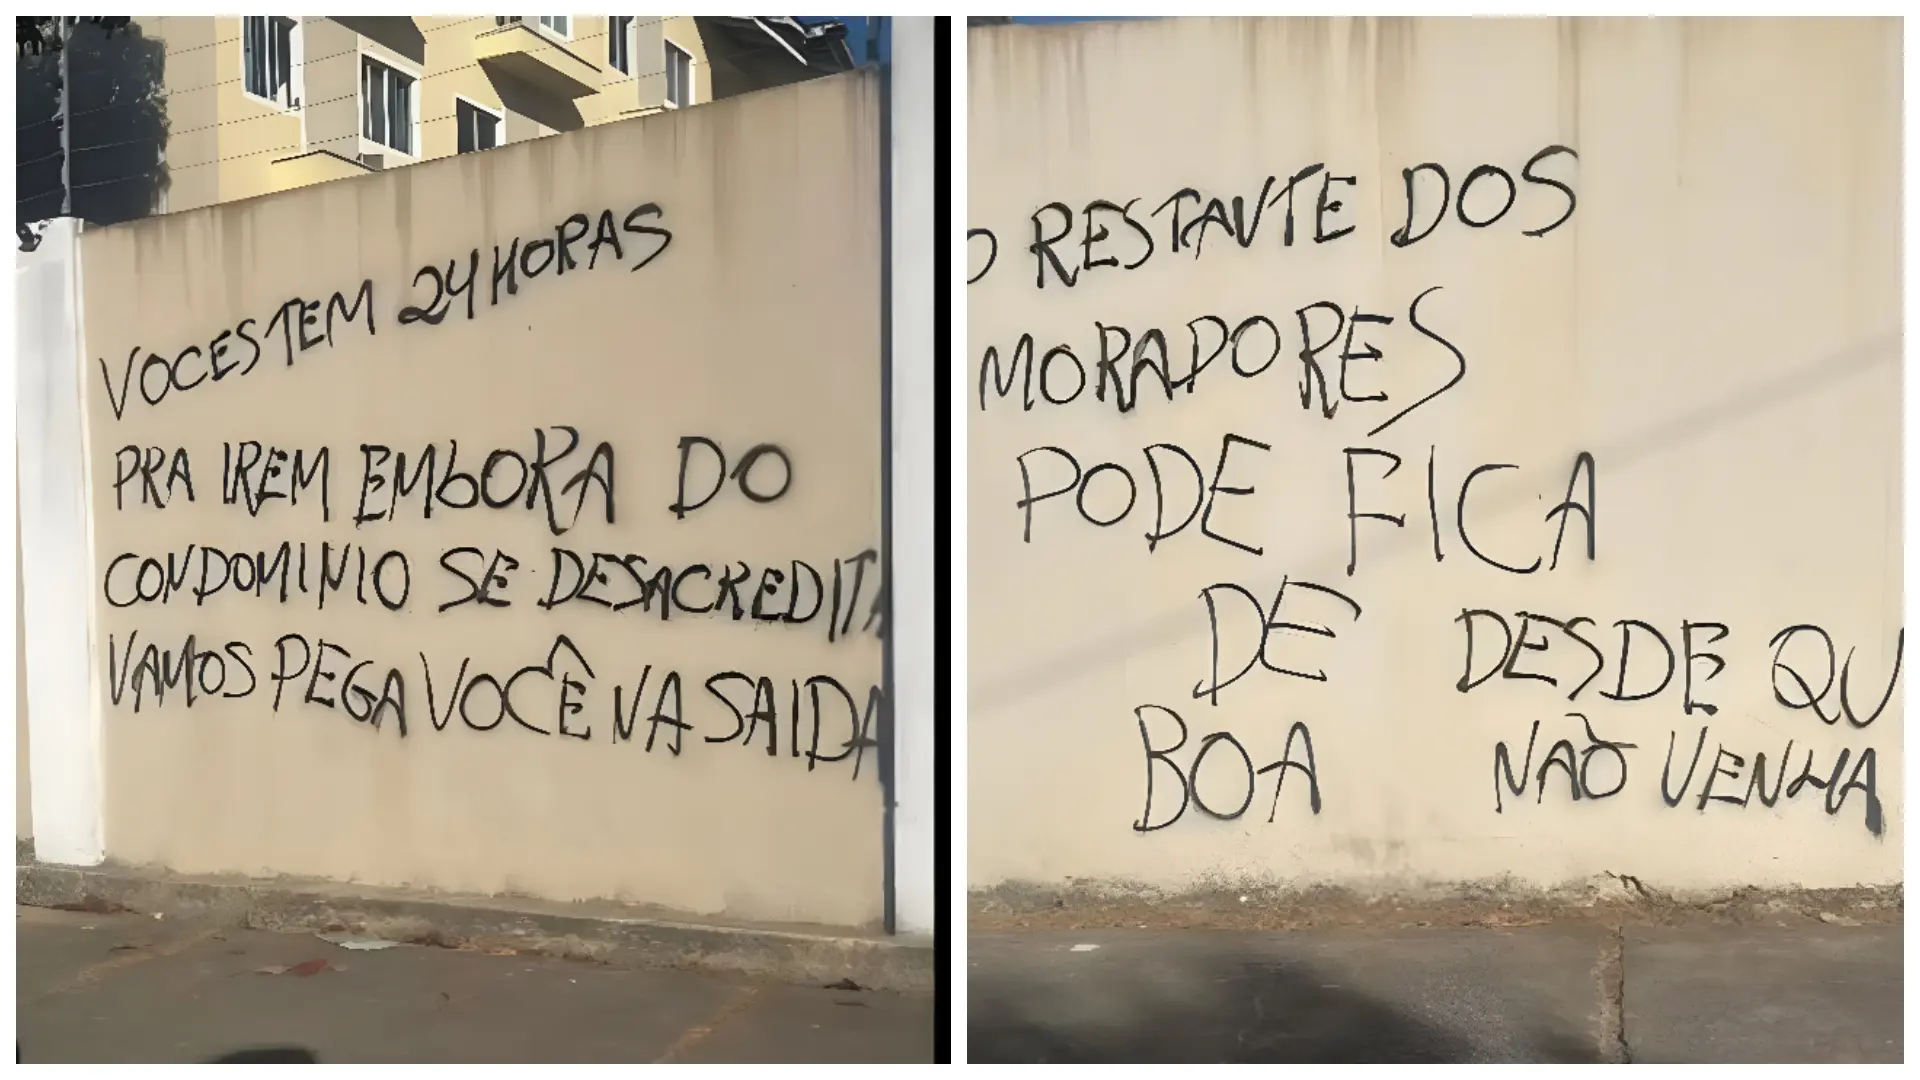 VOCES TEM 24 HORAS
PRA IREM EMBORA DO
CONDOMINIO SE DESACREDITA
VAMOS PEGA VOCÊ NA SAIDA
O RESTANTE DOS
MORADORES
PODE FICA
DE
BOA
DESDE QU
NÃO VENHA